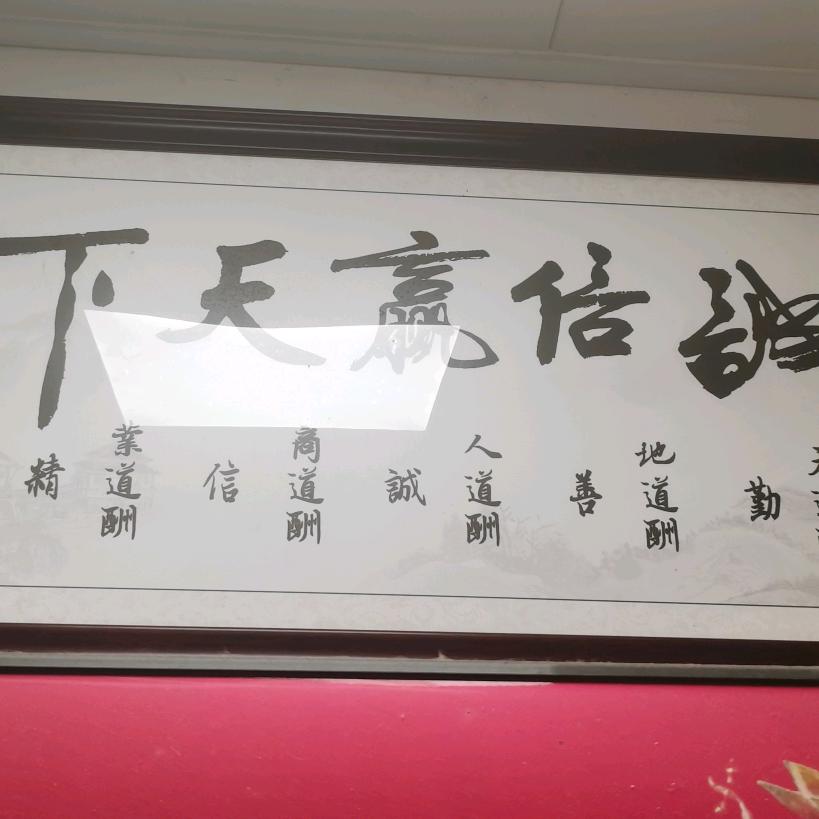 誠信贏天下
勤
地道酬
善
人道酬
誠
商道酬
信
業道酬
精